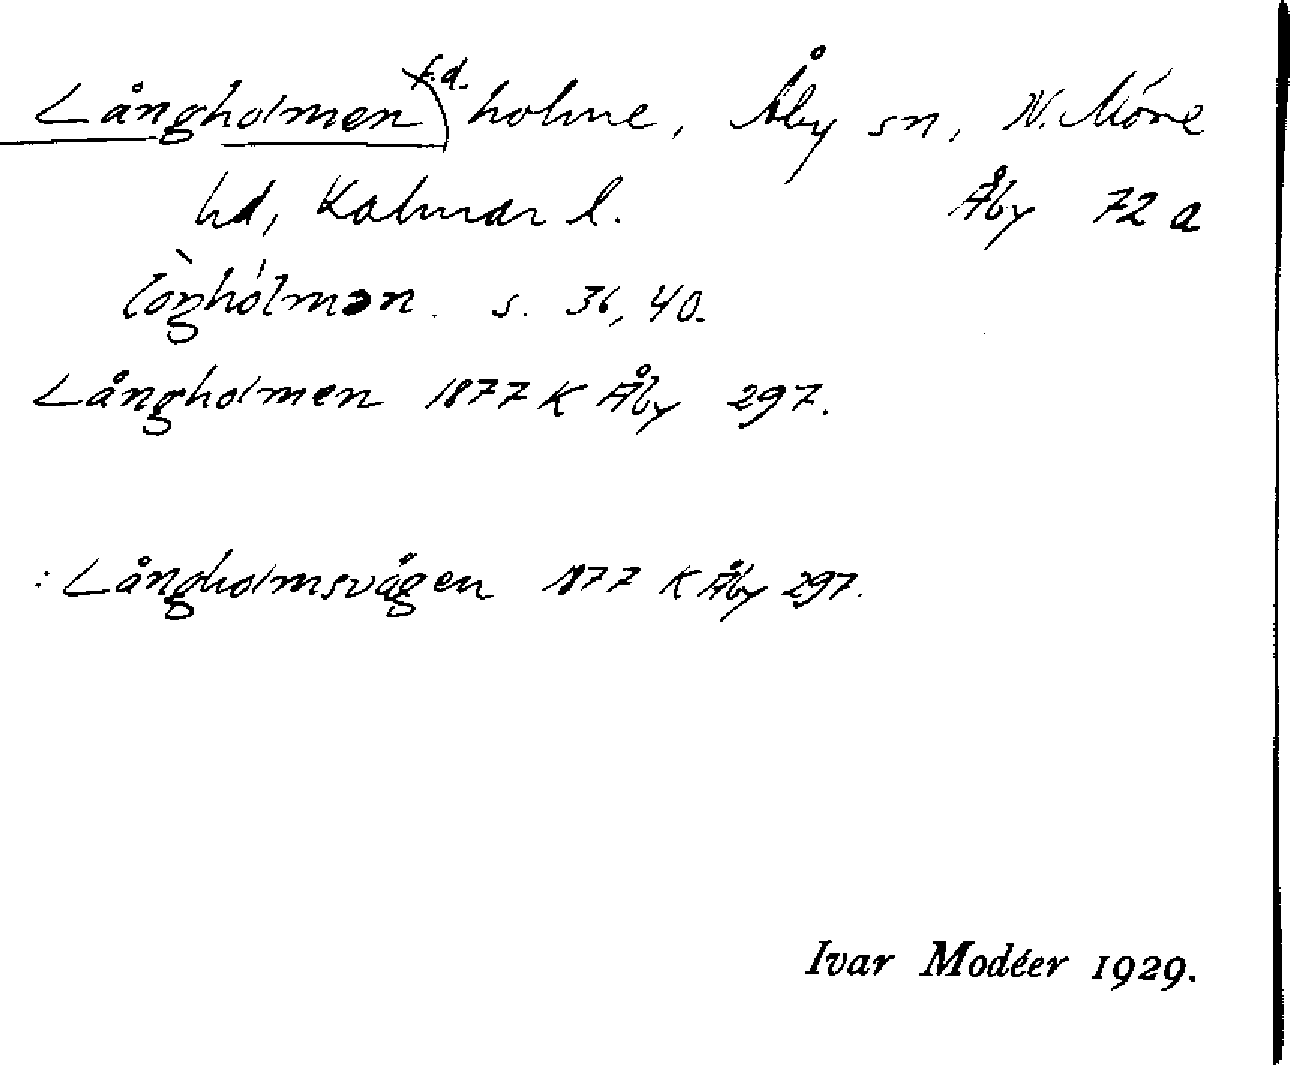 Långholmen f.d. holme, Åby sn, N. Möre
hd, Kalmar l. Åby 72 a
s. 36, 40.
Långholmen 1877 K Åby 297.
: Långholmsvägen 1877 K Åby 297.
Ivar Modéer 1929.